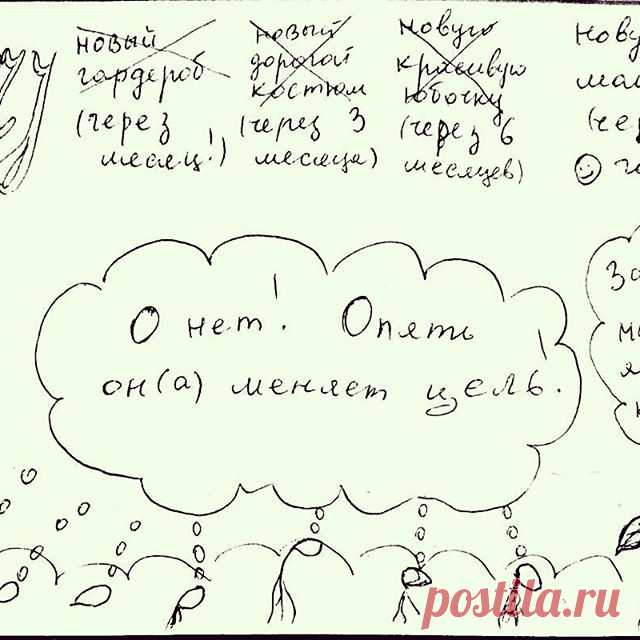 новый
гардероб
(через
месяц!)
новый
дорогой
костюм
(через 3
месяца)
новую
красивую
юбочку
(через 6
месяцев)
О нет! Опять
он(а) меняет цель!
postila.ru